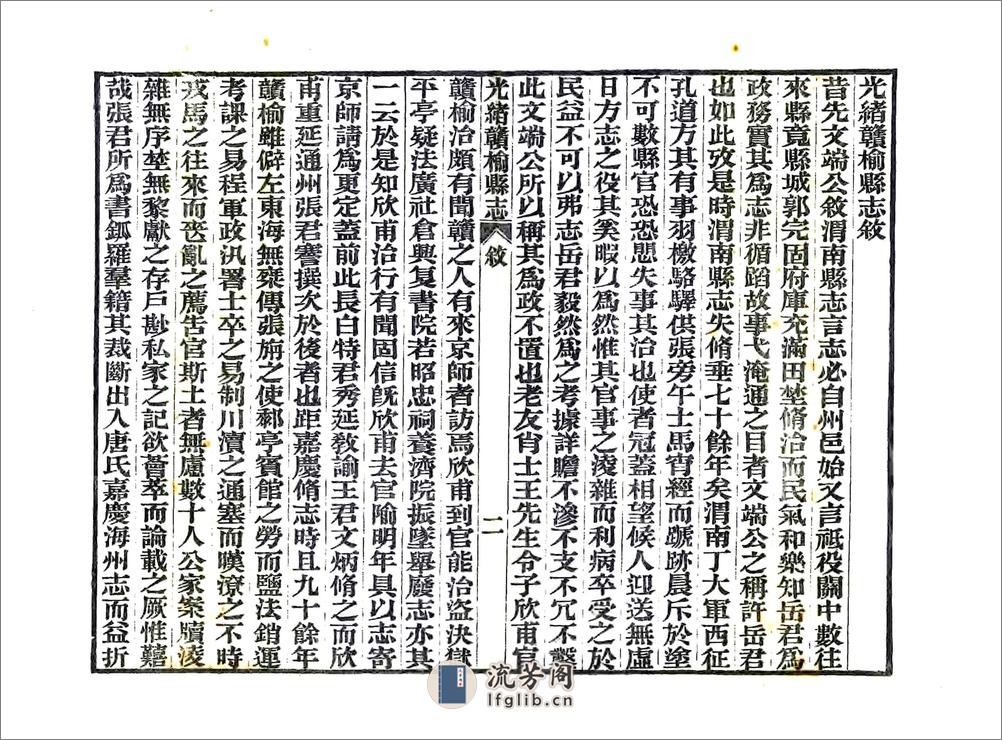 光緒贛榆縣志敘
昔先文端公敘渭南縣志言志必自州邑始又言祗役關中數往
來縣竟縣城郭完固府庫充滿田埜脩治而民氣和樂知岳君爲
政務實其爲志非循蹈故事弋淹通之目者文端公之稱許岳君
也如此攷是時渭南縣志失脩垂七十餘年矣渭南丁大軍西征
孔道方其有事羽檄駱驛供張旁午士馬宵經而蹏跡晨斥於塗
不可數縣官恐恐悲失事其治也使者冠蓋相望候人迎送無虛
日方志之役其奚暇以爲然惟其官事之淩雜而利病卒受之於
民益不可以弗志岳君毅然爲之考據詳贍不滲不支不冗不鑿
此文端公所以稱其爲政不置也老友肖士王先生令子欣甫官
光緒贛榆縣志 敘 二
贛榆治頗有聞贛之人有來京師者訪焉欣甫到官能治盜決獄
平亭疑法廣社倉興复書院若昭忠祠養濟院振墜舉廢志亦其
一云於是知欣甫治行有聞固信旣欣甫去官隃明年具以志寄
京師請爲更定蓋前此長白特君秀延敎諭王君文炳脩之而欣
甫重延通州張君謇撰次於後者也距嘉慶脩志時且九十餘年
贛榆雖僻左東海無槩傳張旃之使郵亭賓館之勞而鹽法銷運
考課之易程軍政汛署士卒之易制川瀆之通塞而嘆潦之不時
戎馬之往來而宼亂之薦告官斯土者無慮數十人公家案牘淩
雜無序埜無黎獻之存戶尟私家之記欲薈萃而論載之厥惟囏
哉張君所爲書鈲羅羣籍其裁斷出入唐氏嘉慶海州志而益折
流芳阁
lfglib.cn